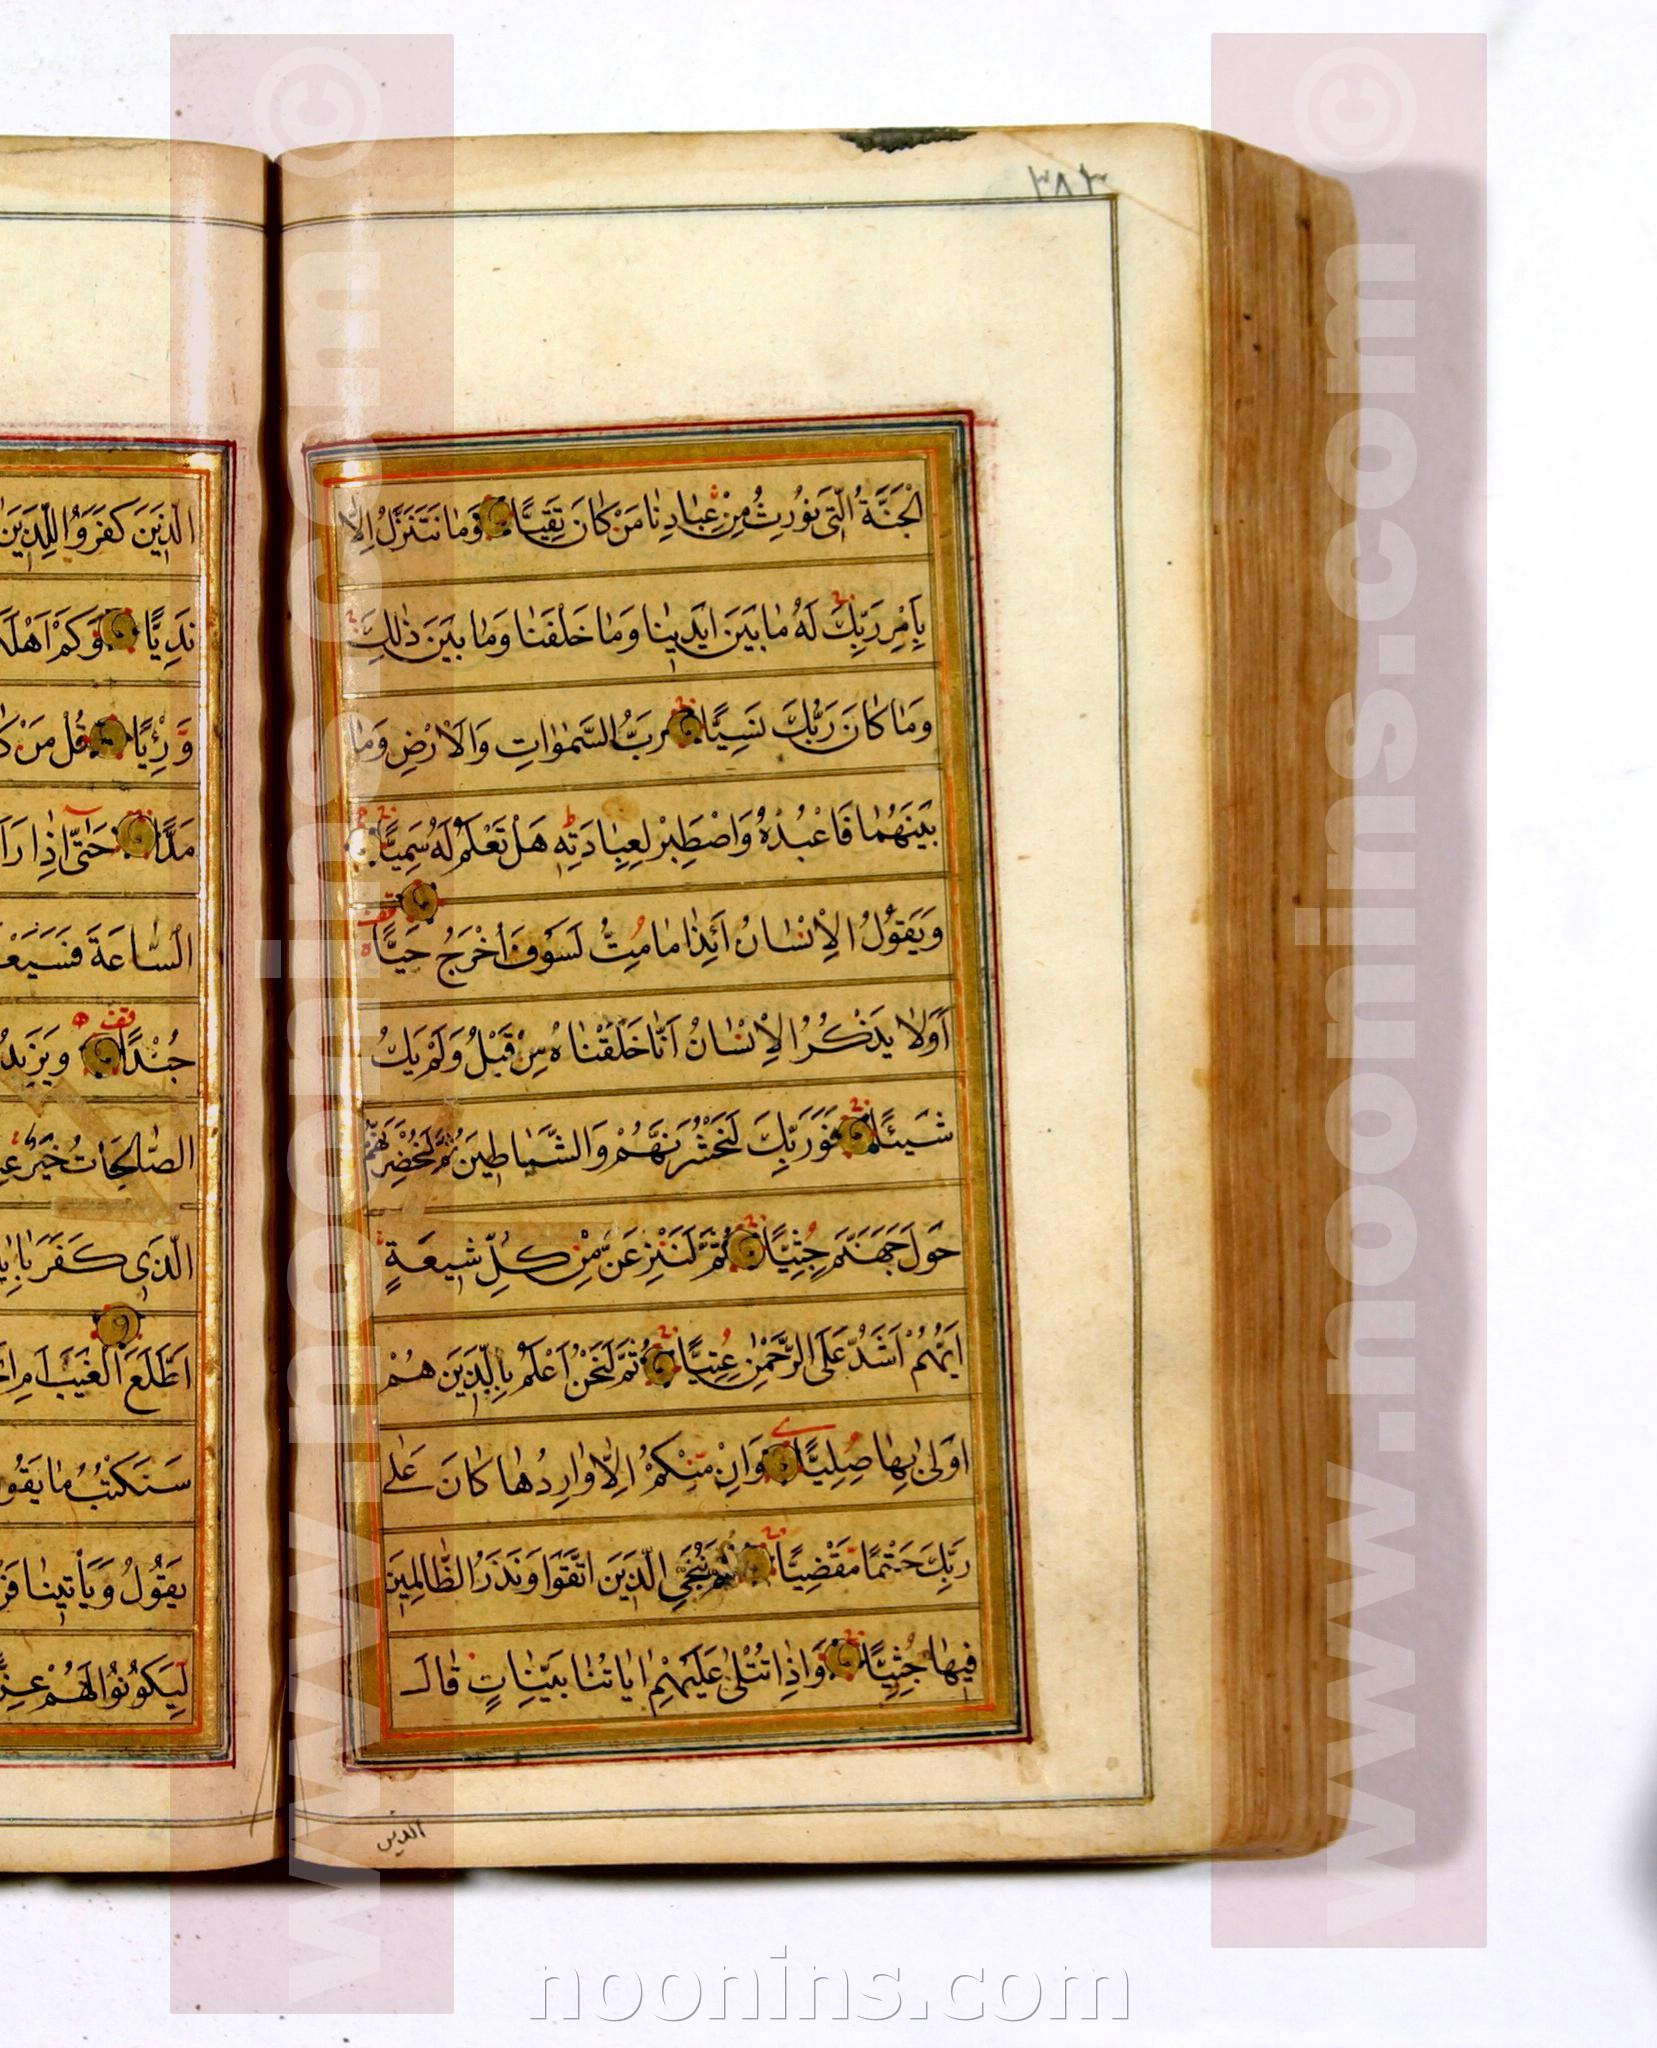 ٣٨٣
الْجَنَّةُ الَّتِي نُورِثُ مِنْ عِبَادِنَا مَنْ كَانَ تَقِيًّا وَمَا نَتَنَزَّلُ اِلَّا
بِاَمْرِ رَبِّكَ لَهُ مَا بَيْنَ اَيْدِينَا وَمَا خَلْفَنَا وَمَا بَيْنَ ذٰلِكَ
وَمَا كَانَ رَبُّكَ نَسِيًّا رَبُّ السَّمٰوَاتِ وَالْاَرْضِ وَمَا
بَيْنَهُمَا فَاعْبُدْهُ وَاصْطَبِرْ لِعِبَادَتِهِ هَلْ تَعْلَمُ لَهُ سَمِيًّا
وَيَقُولُ الْاِنْسَانُ اَئِذَا مَا مِتُّ لَسَوْفَ اُخْرَجُ حَيًّا
اَوَلَا يَذْكُرُ الْاِنْسَانُ اَنَّا خَلَقْنَاهُ مِنْ قَبْلُ وَلَمْ يَكُ
شَيْئًا فَوَرَبِّكَ لَنَحْشُرَنَّهُمْ وَالشَّيَاطِينَ ثُمَّ لَنُحْضِرَنَّهُمْ
حَوْلَ جَهَنَّمَ جِثِيًّا ثُمَّ لَنَنْزِعَنَّ مِنْ كُلِّ شِيعَةٍ
اَيُّهُمْ اَشَدُّ عَلَى الرَّحْمٰنِ عِتِيًّا ثُمَّ لَنَحْنُ اَعْلَمُ بِالَّذِينَ هُمْ
اَوْلىٰ بِهَا صِلِيًّا وَاِنْ مِنْكُمْ اِلَّا وَارِدُهَا كَانَ عَلىٰ
رَبِّكَ حَتْمًا مَقْضِيًّا ثُمَّ نُنَجِّي الَّذِينَ اتَّقَوْا وَنَذَرُ الظَّالِمِينَ
فِيهَا جِثِيًّا وَاِذَا تُتْلىٰ عَلَيْهِمْ اٰيَاتُنَا بَيِّنَاتٍ قَالَ
الذين
الَّذِينَ كَفَرُوا لِلَّذِينَ
نَدِيًّا وَكَمْ اَهْلَكْ
وَرِءْيًا قُلْ مَنْ كَا
مَدًّا حَتّٰى اِذَا رَاَ
السَّاعَةَ فَسَيَعْ
جُنْدًا وَيَزِيدُ
الصَّالِحَاتُ خَيْرٌ عِ
الَّذِي كَفَرَ بِاٰيَا
اَطَّلَعَ الْغَيْبَ اَمِ اتَّ
سَنَكْتُبُ مَا يَقُو
يَقُولُ وَيَأْتِينَا فَرْ
لِيَكُونُوا لَهُمْ عِزًّ
www.noonins.com ©
www.noonins.com ©
noonins.com